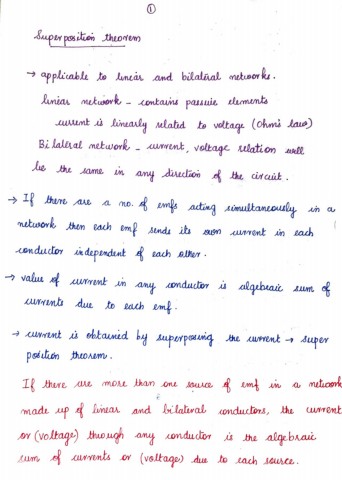 ①
Superposition theorem
→ applicable to linear and bilateral networks.
linear network - contains passive elements
current is linearly related to voltage (Ohm's law)
Bilateral network - current, voltage relation will
be the same in any direction of the circuit.
→ If there are a no. of emfs acting simultaneously in a
network then each emf sends its own current in each
conductor independent of each other.
→ value of current in any conductor is algebraic sum of
currents due to each emf.
→ current is obtained by superposing the current → super
position theorem.
If there are more than one source of emf in a network
made up of linear and bilateral conductors, the current
or (voltage) through any conductor is the algebraic
sum of currents or (voltage) due to each source.